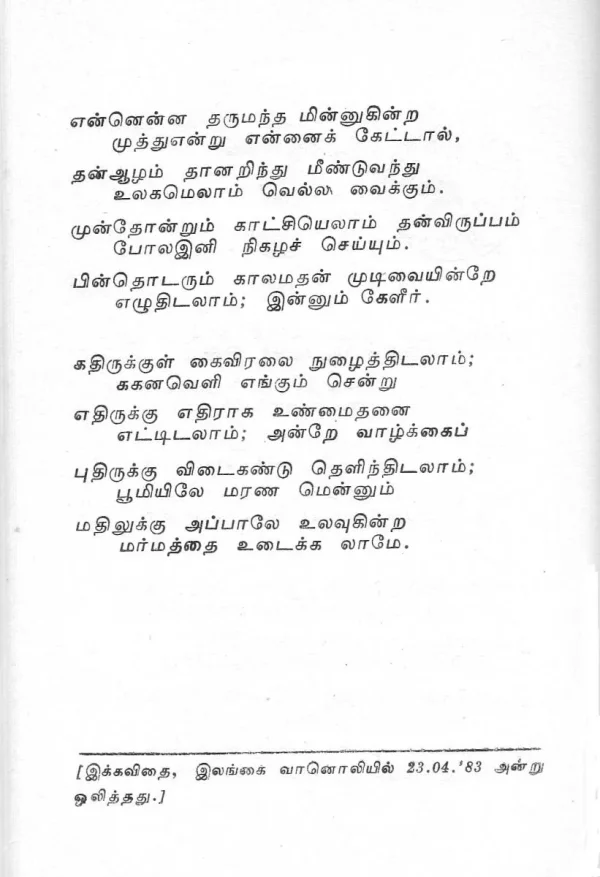 என்னென்ன தருமந்த மின்னுகின்ற
முத்துஎன்று என்னைக் கேட்டால்,
தன்ஆழம் தானறிந்து மீண்டுவந்து
உலகமெலாம் வெல்ல வைக்கும்.
முன்தோன்றும் காட்சியெலாம் தன்விருப்பம்
போலஇனி நிகழச் செய்யும்.
பின்தொடரும் காலமதன் முடிவையின்றே
எழுதிடலாம்; இன்னும் கேளீர்.
கதிருக்குள் கைவிரலை நுழைத்திடலாம்;
ககனவெளி எங்கும் சென்று
எதிருக்கு எதிராக உண்மைதனை
எட்டிடலாம்; அன்றே வாழ்க்கைப்
புதிருக்கு விடைகண்டு தெளிந்திடலாம்;
பூமியிலே மரண மென்னும்
மதிலுக்கு அப்பாலே உலவுகின்ற
மர்மத்தை உடைக்க லாமே.
[இக்கவிதை, இலங்கை வானொலியில் 23.04.'83 அன்று
ஒலித்தது.]